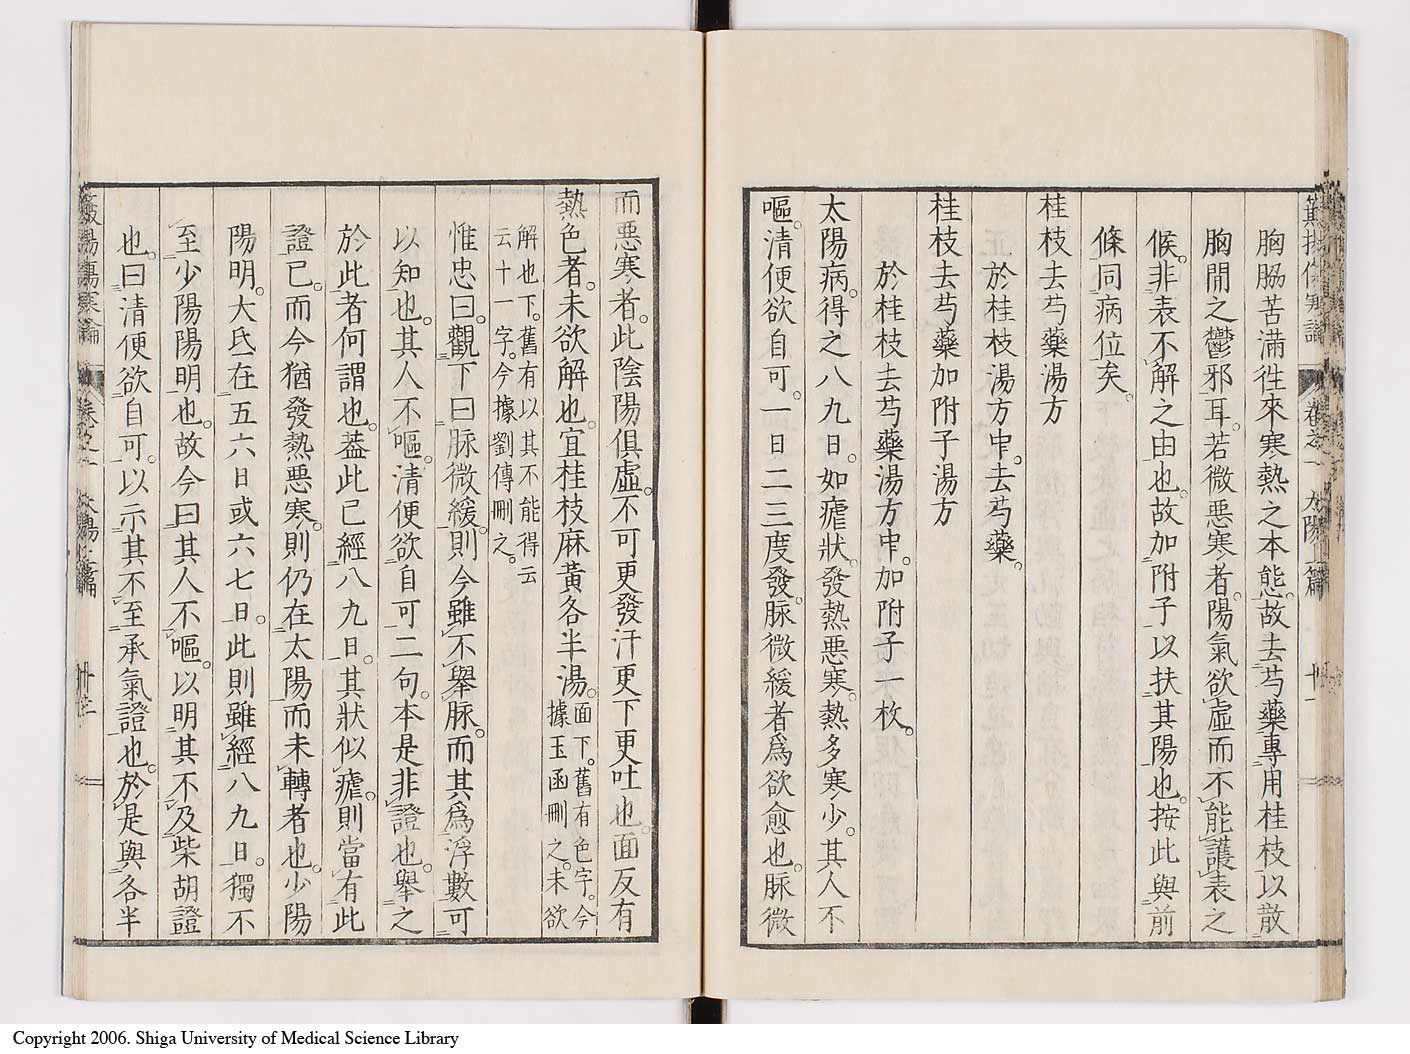 胸脇苦滿徃來寒熱之本態。故去芍藥專用桂枝以散
胸間之鬱邪耳。若微惡寒者。陽氣欲虛而不能護表之
候。非表不解之由也。故加附子以扶其陽也。按此與前
條同病位矣。
桂枝去芍藥湯方
於桂枝湯方中。去芍藥。
桂枝去芍藥加附子湯方
於桂枝去芍藥湯方中。加附子一枚。
太陽病。得之八九日。如瘧狀。發熱惡寒。熱多寒少。其人不
嘔。清便欲自可。一日二三度發。脉微緩者爲欲愈也。脉微
而惡寒者。此陰陽俱虛。不可更發汗更下更吐也。面反有
熱色者。未欲解也。宜桂枝麻黃各半湯。面下。舊有色字。今
據玉函刪之。未欲
解也下。舊有以其不能得云
云十一字。今據劉傳刪之。
惟忠曰。觀下曰脉微緩。則今雖不舉脉。而其爲浮數可
以知也。其人不嘔。清便欲自可二句。本是非證也。舉之
於此者何謂也。蓋此已經八九日。其狀似瘧。則當有此
證已。而今猶發熱惡寒。則仍在太陽而未轉者也。少陽
陽明。大氐在五六日或六七日。此則雖經八九日。獨不
至少陽陽明也。故今曰其人不嘔。以明其不及柴胡證
也。曰清便欲自可。以示其不至承氣證也。於是與各半
Copyright 2006. Shiga University of Medical Science Library